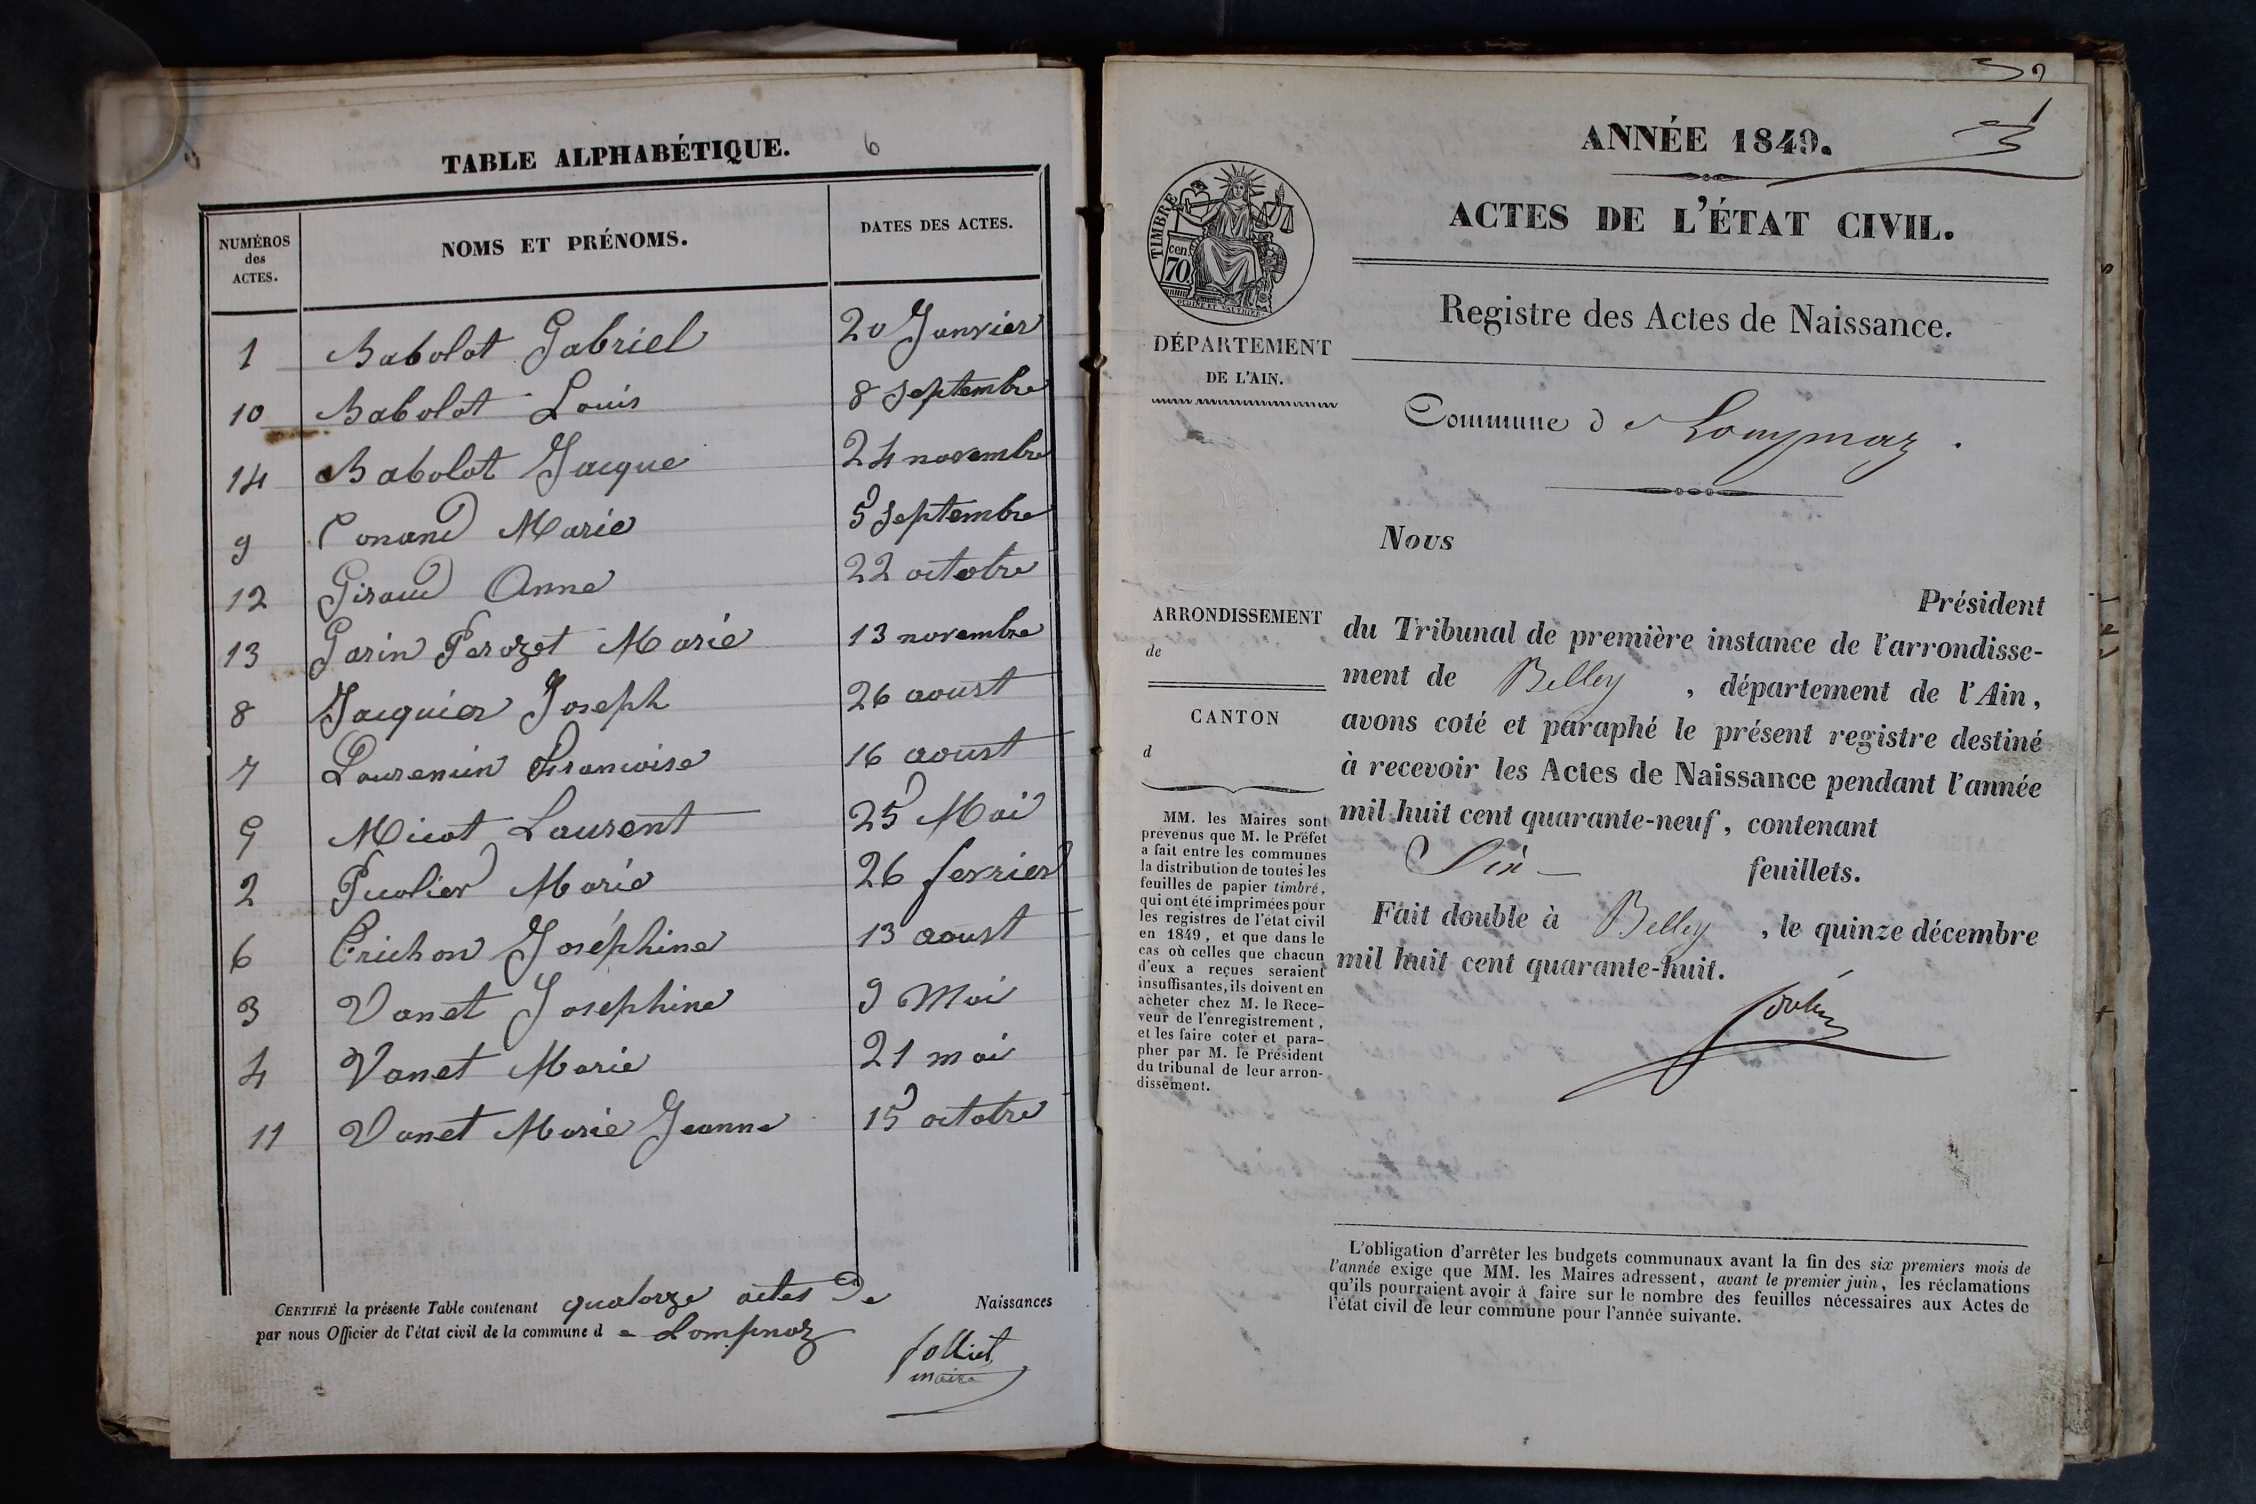 TABLE ALPHABÉTIQUE. 6
NUMÉROS des ACTES. NOMS ET PRÉNOMS. DATES DES ACTES.
1 Babolat Gabriel 20 Janvier
10 Babolat Louis 8 septembre
14 Babolat Jacque 24 novembre
9 Conand Marie 5 septembre
12 Giraud Anne 22 octobre
13 Garin Perozet Marie 13 novembre
8 Jacquier Joseph 26 aoust
7 Laurencin Francoise 16 aoust
5 Micot Laurent 25 Mai
2 Pucolier Marie 26 fevrier
6 Crichon Joséphine 13 aoust
3 Vanet Joséphine 9 Mai
4 Vanet Marie 21 mai
11 Vanet Marie Jeanne 15 octobre
CERTIFIÉ la présente Table contenant quatorze actes De Naissances
par nous Officier de l'état civil de la commune d e Lompnaz
Jolliet
maire
ANNÉE 1849.
ACTES DE L'ÉTAT CIVIL.
TIMBRE
70 cen.
Registre des Actes de Naissance.
DÉPARTEMENT
DE L'AIN.
Commune d e Lompnaz.
Nous
Président
ARRONDISSEMENT
de
CANTON
d
du Tribunal de première instance de l'arrondisse-
ment de Belley, département de l'Ain,
avons coté et paraphé le présent registre destiné
à recevoir les Actes de Naissance pendant l'année
mil huit cent quarante-neuf, contenant
Six feuillets.
Fait double à Belley, le quinze décembre
mil huit cent quarante-huit.
MM. les Maires sont
prévenus que M. le Préfet
a fait entre les communes
la distribution de toutes les
feuilles de papier timbré,
qui ont été imprimées pour
les registres de l'état civil
en 1849, et que dans le
cas où celles que chacun
d'eux a reçues seraient
insuffisantes, ils doivent en
acheter chez M. le Rece-
veur de l'enregistrement,
et les faire coter et para-
pher par M. le Président
du tribunal de leur arron-
dissement.
L'obligation d'arrêter les budgets communaux avant la fin des six premiers mois de
l'année exige que MM. les Maires adressent, avant le premier juin, les réclamations
qu'ils pourraient avoir à faire sur le nombre des feuilles nécessaires aux Actes de
l'état civil de leur commune pour l'année suivante.